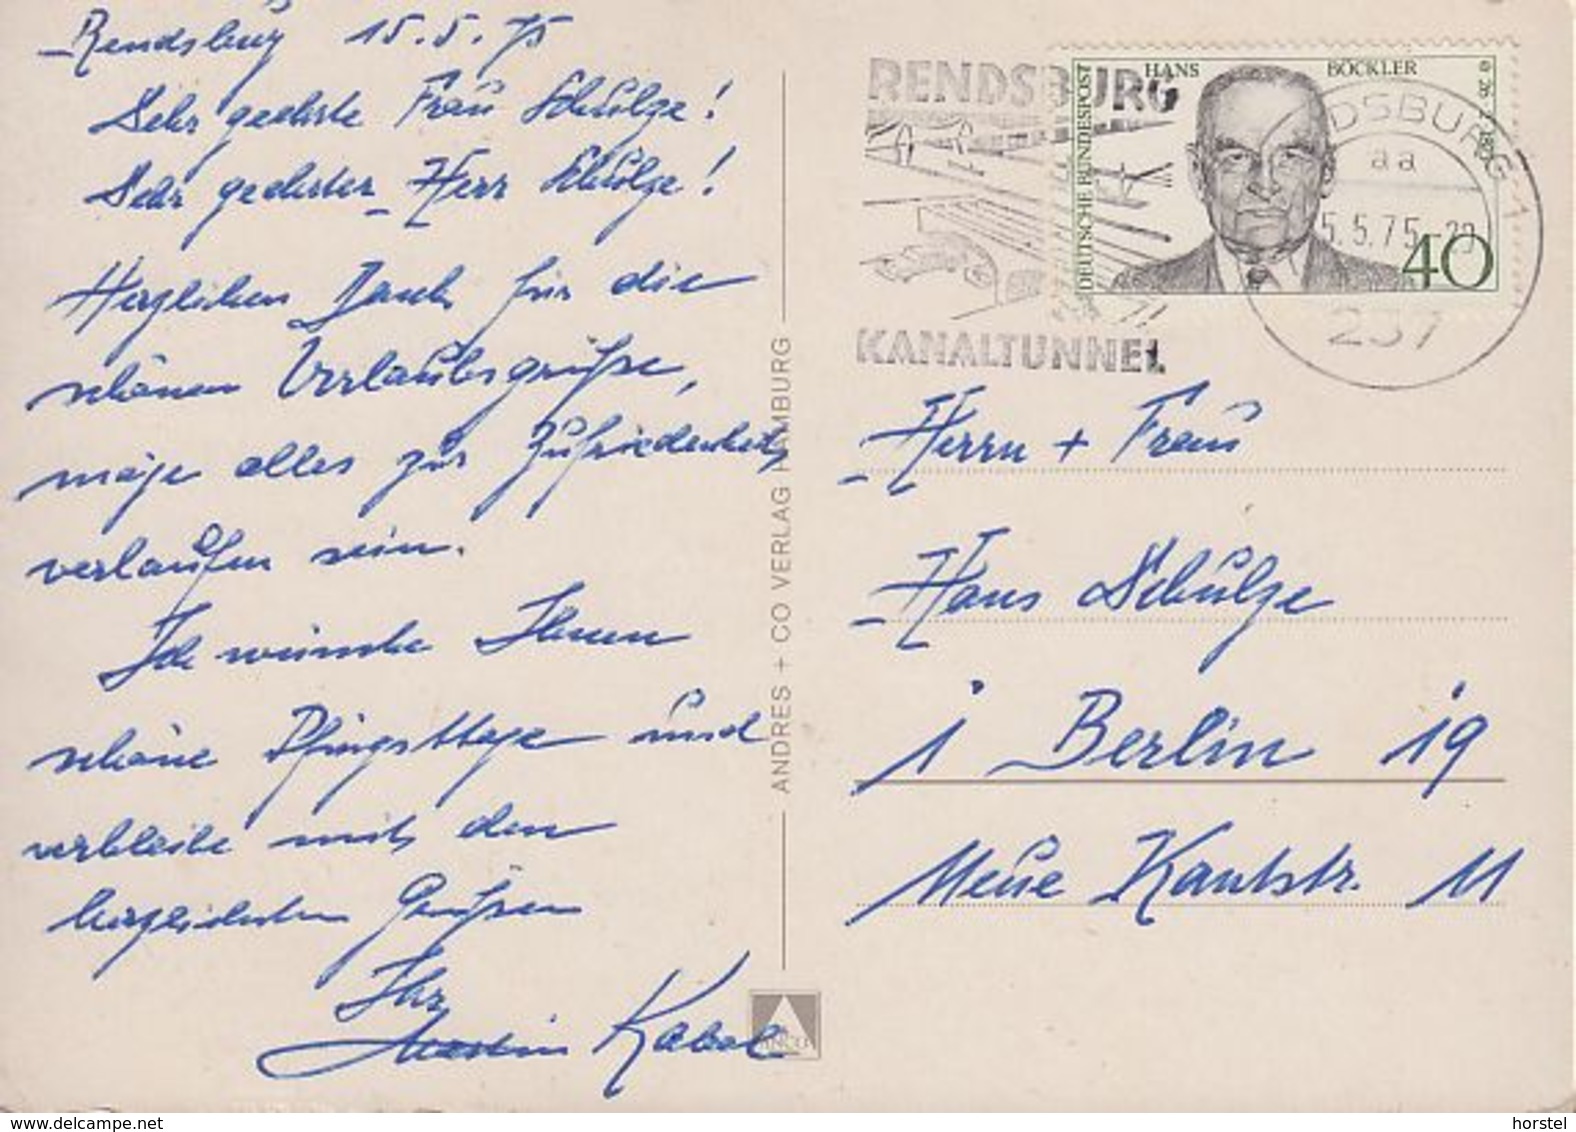 Rendsburg 15.5.75
Sehr geehrte Frau Schulze!
Sehr geehrter Herr Schulze!
Herzlichen Dank für die
schönen Urlaubsgrüße,
möge alles zur Zufriedenheit
verlaufen sein.
Ich wünsche Ihnen
schöne Pfingsttage und
verbleibe mit den
herzlichsten Grüßen
Ihr
Martin Kabel
ANDRES + CO VERLAG HAMBURG
ANCO
RENDSBURG
KANALTUNNEL
HANS BÖCKLER
DEUTSCHE BUNDESPOST
40
RENDSBURG 1
aa
5.5.75
237
Herrn + Frau
Hans Schulze
1 Berlin 19
Neue Kantstr. 11
www.delcampe.net
horstel